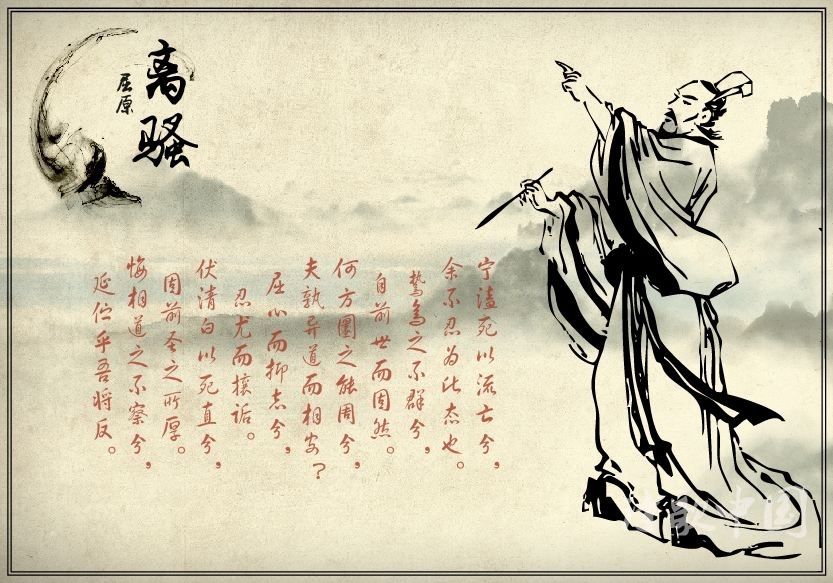 离骚
屈原
宁溘死以流亡兮，
余不忍为此态也。
鸷鸟之不群兮，
自前世而固然。
何方圜之能周兮，
夫孰异道而相安？
屈心而抑志兮，
忍尤而攘诟。
伏清白以死直兮，
固前圣之所厚。
悔相道之不察兮，
延伫乎吾将反。
中国